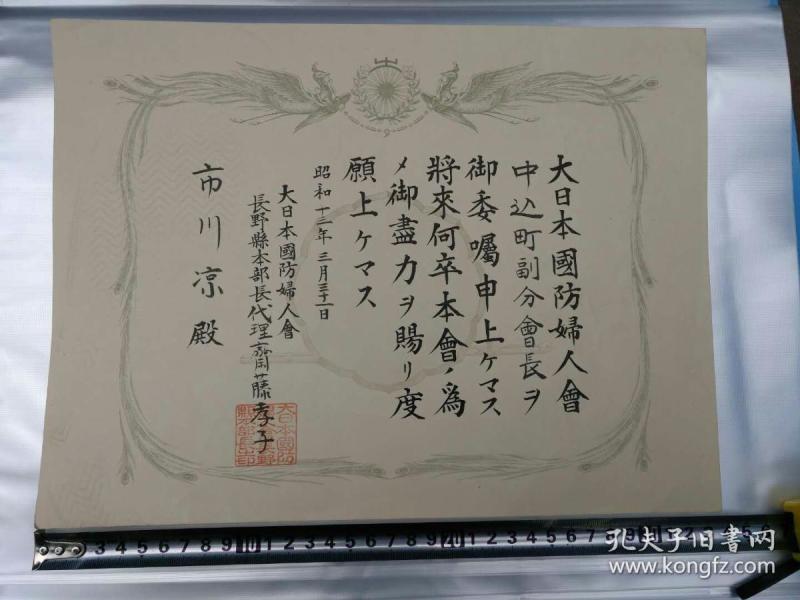 大日本國防婦人會
中込町副分會長ヲ
御委囑申上ケマス
將來何卒本會ノ爲
メ御盡力ヲ賜リ度
願上ケマス
昭和十三年三月三十一日
大日本國防婦人會
長野縣本部長代理齋藤孝子
市川凉殿
3 4 5 6 7 8 9 10 1 2 3 4 5 6 7 8 9 20 1 2 3 4 5 6 7
孔夫子旧书网
www.kongfz.com